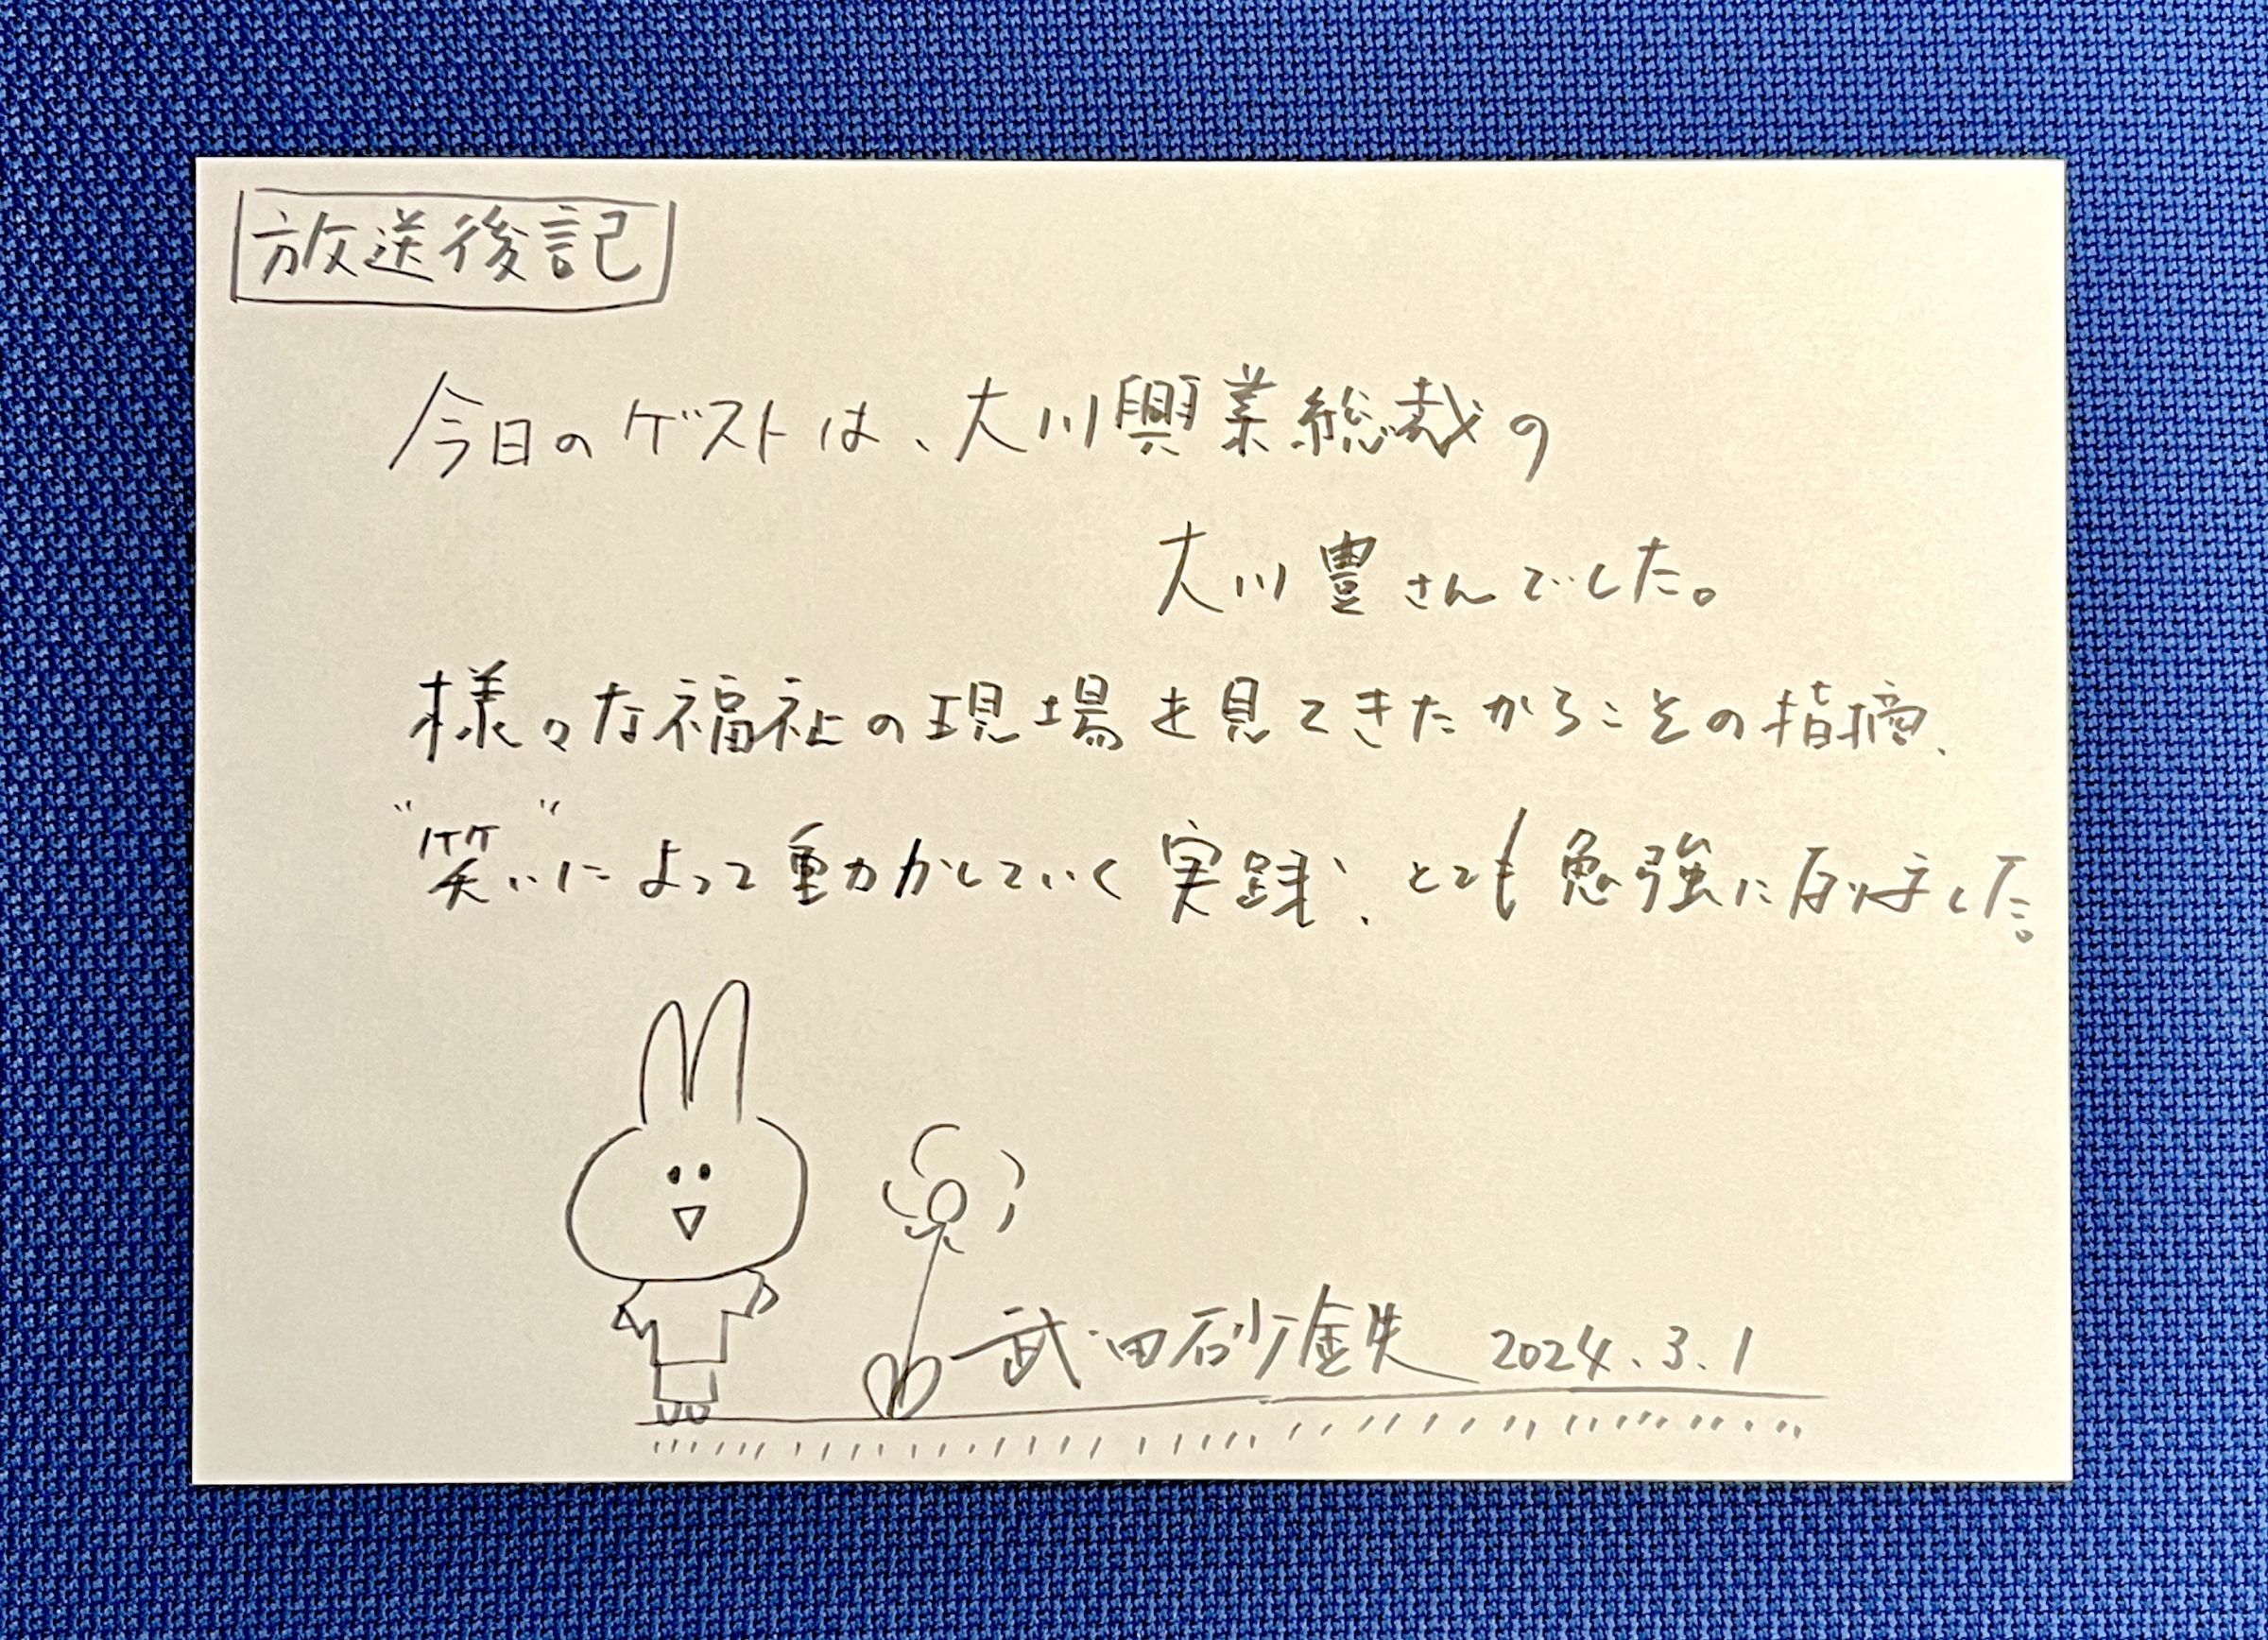 放送後記
今日のゲストは、大川興業総裁の
大川豊さんでした。
様々な福祉の現場を見てきたからこその指摘、
"笑い"によって動かしていく実践、とても勉強になりました。
武田砂鉄 2024.3.1